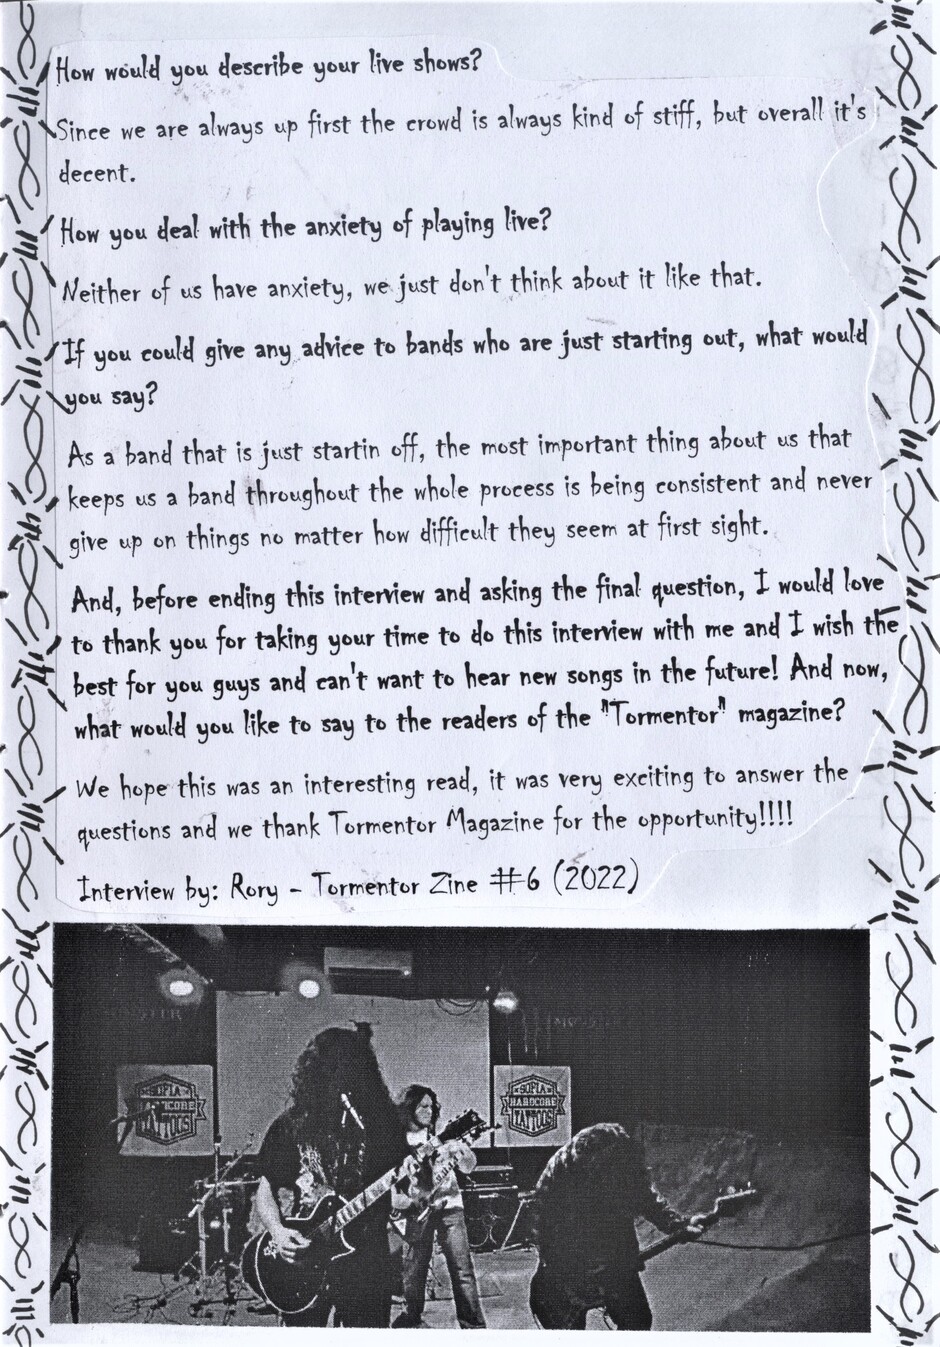 How would you describe your live shows?
Since we are always up first the crowd is always kind of stiff, but overall it's
decent.
How you deal with the anxiety of playing live?
Neither of us have anxiety, we just don't think about it like that.
If you could give any advice to bands who are just starting out, what would
you say?
As a band that is just startin off, the most important thing about us that
keeps us a band throughout the whole process is being consistent and never
give up on things no matter how difficult they seem at first sight.
And, before ending this interview and asking the final question, I would love
to thank you for taking your time to do this interview with me and I wish the
best for you guys and can't want to hear new songs in the future! And now,
what would you like to say to the readers of the "Tormentor" magazine?
We hope this was an interesting read, it was very exciting to answer the
questions and we thank Tormentor Magazine for the opportunity!!!!
Interview by: Rory - Tormentor Zine #6 (2022)
SOFIA
HARDCORE
TATTOOS
SOFIA
HARDCORE
TATTOOS